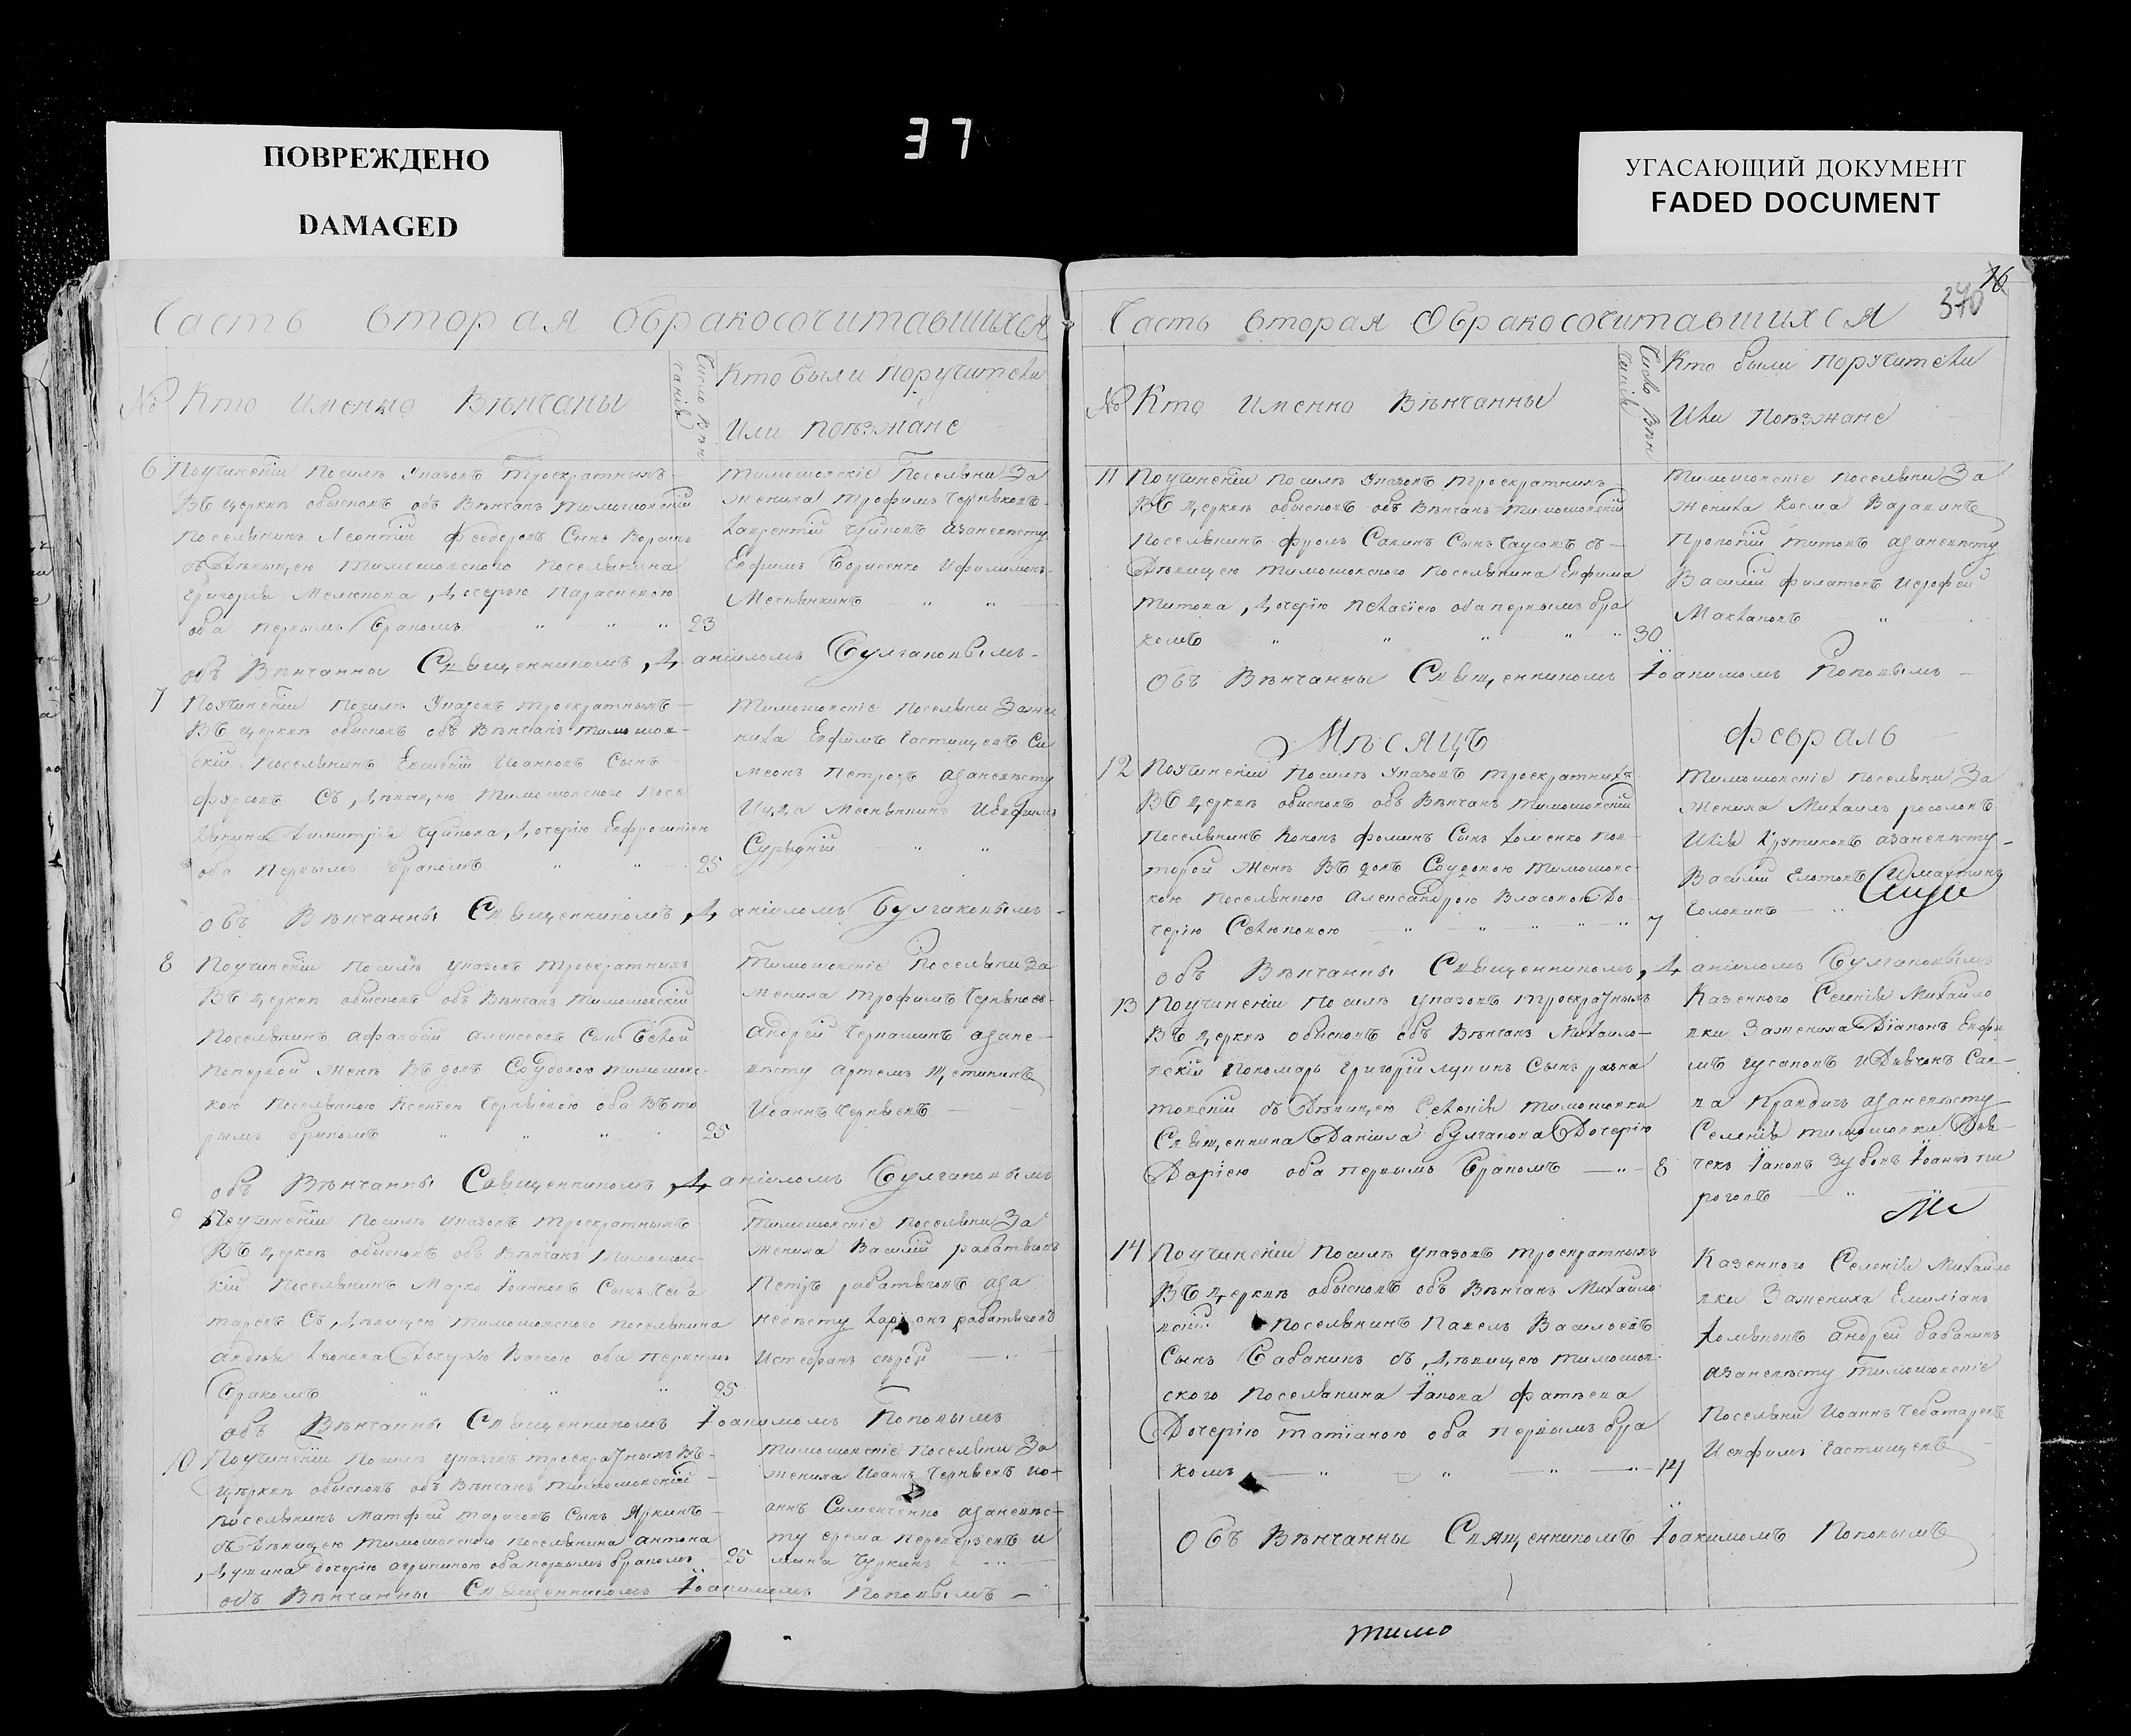 ПОВРЕЖДЕНО
DAMAGED
37
УГАСАЮЩИЙ ДОКУМЕНТ
FADED DOCUMENT
Часть вторая обракосочитавшихся
№ Кто именно Вѣнчаны
Число Вѣнчаніѣ
Кто были поручители
или поѣзжане
6 Поучиненіи посилѣ указовъ троекратныхъ
Въ церквѣ обысковъ обѣ Вѣнчанъ тимошовскій
поселянинъ Леонтій Федоровъ Сынъ
съ Дѣвицею тимошовского поселянина
Григорія Мелюкова, Дочерью Параскевою
оба первымъ бракомъ 23
Тимошовскіе Поселяни За
жениха трофимъ Черняковъ
Лаврентій Чуйковъ азаневѣсту
Ефимъ Борисенко Ифилимонъ
Меснянкинъ
объ Вѣнчанны Священникомъ, Даніиломъ Булгаковымъ
7 Поучиненіи посилѣ Указовъ троекратныхъ
Въ церквѣ обысковъ объ Вѣнчанъ тимошов
скій поселянинъ Евсигній Иоанновъ Сынъ
Фурсовъ Съ, Дѣвицею тимошовского посе
лянина Димитрія Чуйкова, Дочерію Евфросиніею
оба первымъ бракомъ 25
Тимошовскіе поселяни Заже
ниха Ефимъ Частищевъ Си
меонъ Петровъ азаневѣсту
Иуда Меснянкинъ Иевфимъ
Сурядній
объ Вѣнчанны Священникомъ, Даніиломъ Булгаковымъ
8 Поучиненіи посилѣ указовъ троекратныхъ
Въ церквѣ обысковъ объ Вѣнчанъ тимошовскій
поселянинъ Афанасій Алексеевъ Сынъ Белой
поперьвой женѣ Въдовъ Совдовою тимошовс
кою поселянкою Ксеніею Черняевою оба Въто
рымъ бракомъ 25
Тимошовскіе Поселяни За
жениха трофимъ Черняевъ
Андрей Черкашинъ азане
вѣсту Артемъ Щетининъ
Иоаннъ Черняевъ
объ Вѣнчанны Священникомъ, Даніиломъ Булгаковымъ
9 Поучиненіи посилѣ указовъ троекратныхъ
Въ церквѣ обысковъ объ Вѣнчанъ тимошовс
кій поселянинъ Марко Іоанновъ Сынъ Чеба
таревъ Съ, Дѣвицею тимошовского поселянина
Андрея Дочерью Вассою оба первымъ
бракомъ 25
Тимошовскіе поселяни За
жениха Василій работяговъ
Петръ работяговъ аза
невѣсту Ларіонъ работяговъ
Истефанъ сѣрой
объ Вѣнчанны Священникомъ Іоакимомъ Поповымъ
10 Поучиненіи посилѣ указовъ троекратныхъ Въ
церквѣ обысковъ объ Вѣнчанъ тимошовскій
поселянинъ Матфей тарасовъ Сынъ Яркинъ
съ Дѣвицею тимошовского поселянина антона
Душина дочерію агрипиною оба первымъ бракомъ 25
Тимошовскіе поселяни За
жениха Иоаннъ Черняевъ ио
аннъ Симекченко азаневѣс
ту ерема переверзевъ и
мина Чуркинъ
объ Вѣнчанны Священникомъ Іоакимомъ Поповымъ
16
370
Часть вторая Обракосочитавшихся
№ Кто именно Вѣнчанны
Число Вѣнчаніѣ
Кто были поручители
Или поѣзжане
11 Поучиненіи посилѣ указовъ троекратныхъ
Въ церквѣ обысковъ объ Вѣнчанъ тимошовскій
поселянинъ фролъ Савинъ Сынъ Чаусовъ съ
Дѣвицею тимошовского поселянина Евфима
титова, Дочерію Пелагіею оба первымъ бра
комъ 30
Тимошовскіе поселяни За
жениха Косма Варавинъ
Прокопій титовъ азаневѣсту
Василій филатовъ Иерофей
Маклаковъ
Объ Вѣнчанны Священникомъ Іоакимомъ Поповымъ
Мѣсяцъ Февраль
12 Поучиненіи посилѣ указовъ троекратныхъ
Въ церквѣ обысковъ объ Вѣнчанъ тимошовскій
поселянинъ Кононъ фоминъ Сынъ Хоменко повторой
женѣ Въдовъ Совдовою тимошовс
кою поселянкою Александрою Власовою До
черію Селюковою 7
Тимошовскіе поселяни За
жениха Михаилъ росоловъ
Илія Крутиковъ азаневѣсту
Василій Елотовъ Имартинъ
Головинъ
объ Вѣнчанны Священникомъ, Даніиломъ Булгаковымъ
13 Поучиненіи посилѣ указовъ троекратныхъ
Въ церквѣ обысковъ объ Вѣнчанъ Михайло
вскій Пономарь Григорій Лукинъ Сынъ
съ Дѣвицею Селенія тимошовки
Священника Даніила булгакова Дочерію
Даріею оба первымъ бракомъ 8
Казенного Селенія Михайло
вки Зажениха Діаконъ Евфи
мъ Гусаковъ и Дьячокъ Сав
ва азаневѣсту
Селенія тимошовки Дья
чекъ Іаковъ Зубовъ Іоаннъ пи
роговъ
14 Поучиненіи посилѣ указовъ троекратныхъ
Въ церквѣ обысковъ объ Вѣнчанъ Михайло
вскій поселянинъ Павелъ Васильевъ
Сынъ Бабакинъ съ, Дѣвицею тимошов
ского поселянина Іакова фатѣева
Дочерію Татіаною оба первымъ бра
комъ 14
Казенного Селенія Михайло
вки Зажениха Емиліанъ
Хомяковъ андрей бабакинъ
азаневѣсту тимошовскіе
Поселяни Иоаннъ Чебатаревъ
Иевфимъ Частищевъ
Объ Вѣнчанны Священникомъ Іоакимомъ Поповымъ
тимо